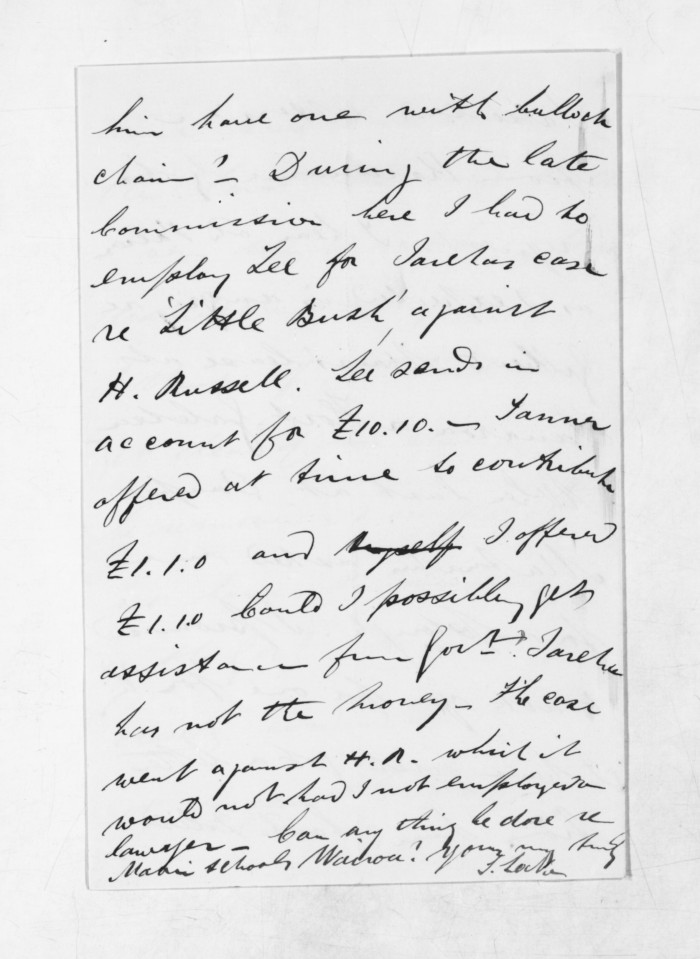 him have one with bullock
chain? - During the late
Commission here I had to
employ Lee for Tarehas case
re 'Little Bush' against
H. Russell. Lee sends in
account for £10.10. - Tanner
offered at time to contribute
£1.1.0 and myself I offered
£1.1.0 Could I possibly get
assistance from Govt? Tareha
has not the money - The case
went against H.R. which it
would not had I not employed a
lawyer - Can any thing be done re
Maori schools Wairoa? Yours very truly
S. Locke